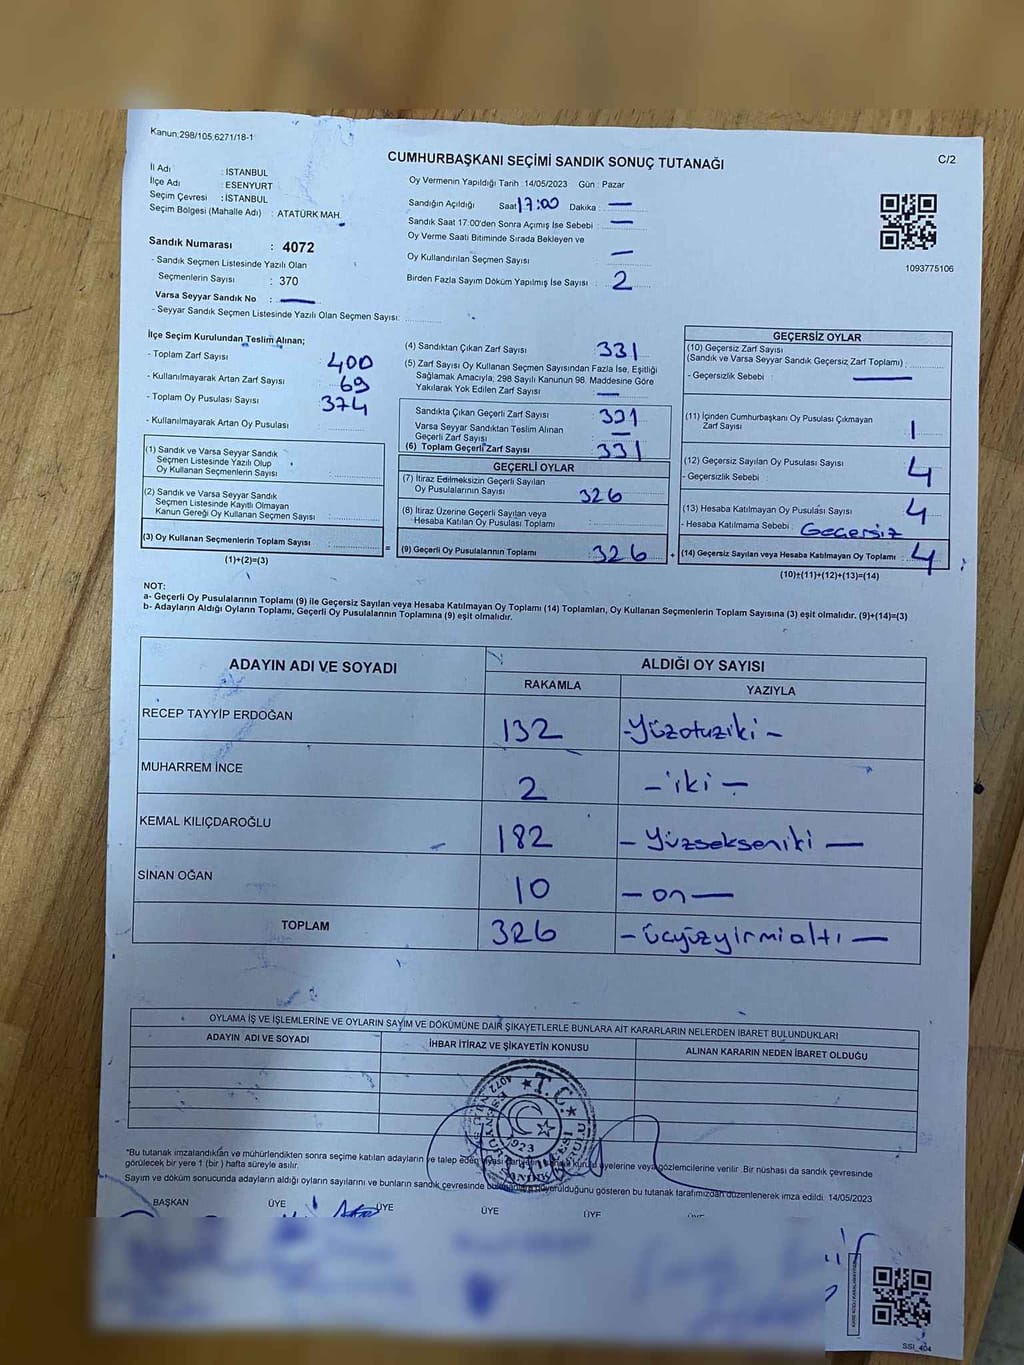 Kanun:298/105,6271/18-1
C/2
CUMHURBAŞKANI SEÇİMİ SANDIK SONUÇ TUTANAĞI
İl Adı : İSTANBUL
İlçe Adı : ESENYURT
Seçim Çevresi : İSTANBUL
Seçim Bölgesi (Mahalle Adı) : ATATÜRK MAH.
Oy Vermenin Yapıldığı Tarih :14/05/2023 Gün : Pazar
Sandığın Açıldığı Saat 17:00 Dakika : —
Sandık Saat 17.00'den Sonra Açımış İse Sebebi : —
Oy Verme Saati Bitiminde Sırada Bekleyen ve
Oy Kullandırılan Seçmen Sayısı —
Birden Fazla Sayım Döküm Yapılmış İse Sayısı : 2
1093775106
Sandık Numarası : 4072
- Sandık Seçmen Listesinde Yazılı Olan
Seçmenlerin Sayısı : 370
Varsa Seyyar Sandık No : —
- Seyyar Sandık Seçmen Listesinde Yazılı Olan Seçmen Sayısı:
İlçe Seçim Kurulundan Teslim Alınan;
- Toplam Zarf Sayısı 400
- Kullanılmayarak Artan Zarf Sayısı 69
- Toplam Oy Pusulası Sayısı 374
- Kullanılmayarak Artan Oy Pusulası
(1) Sandık ve Varsa Seyyar Sandık
Seçmen Listesinde Yazılı Olup
Oy Kullanan Seçmenlerin Sayısı
(2) Sandık ve Varsa Seyyar Sandık
Seçmen Listesinde Kayıtlı Olmayan
Kanun Gereği Oy Kullanan Seçmen Sayısı
(3) Oy Kullanan Seçmenlerin Toplam Sayısı :
(1)+(2)=(3)
(4) Sandıktan Çıkan Zarf Sayısı 331
(5) Zarf Sayısı Oy Kullanan Seçmen Sayısından Fazla İse, Eşitliği
Sağlamak Amacıyla; 298 Sayılı Kanunun 98. Maddesine Göre
Yakılarak Yok Edilen Zarf Sayısı —
Sandıkta Çıkan Geçerli Zarf Sayısı 331
Varsa Seyyar Sandıktan Teslim Alınan
Geçerli Zarf Sayısı —
(6) Toplam Geçerli Zarf Sayısı 331
GEÇERLİ OYLAR
(7) İtiraz Edilmeksizin Geçerli Sayılan
Oy Pusulalarının Sayısı 326
(8) İtiraz Üzerine Geçerli Sayılan veya
Hesaba Katılan Oy Pusulası Toplamı
= (9) Geçerli Oy Pusulalarının Toplamı 326 +
GEÇERSİZ OYLAR
(10) Geçersiz Zarf Sayısı
(Sandık ve Varsa Seyyar Sandık Geçersiz Zarf Toplamı) :
- Geçersizlik Sebebi : —
(11) İçinden Cumhurbaşkanı Oy Pusulası Çıkmayan
Zarf Sayısı 1
(12) Geçersiz Sayılan Oy Pusulası Sayısı 4
- Geçersizlik Sebebi :
(13) Hesaba Katılmayan Oy Pusulası Sayısı 4
- Hesaba Katılmama Sebebi : Geçersiz
(14) Geçersiz Sayılan veya Hesaba Katılmayan Oy Toplamı : 4
(10)+(11)+(12)+(13)=(14)
NOT:
a- Geçerli Oy Pusulalarının Toplamı (9) ile Geçersiz Sayılan veya Hesaba Katılmayan Oy Toplamı (14) Toplamları, Oy Kullanan Seçmenlerin Toplam Sayısına (3) eşit olmalıdır. (9)+(14)=(3)
b- Adayların Aldığı Oyların Toplamı, Geçerli Oy Pusulalarının Toplamına (9) eşit olmalıdır.
ADAYIN ADI VE SOYADI ALDIĞI OY SAYISI
RAKAMLA YAZIYLA
RECEP TAYYİP ERDOĞAN 132 -Yüzotuziki-
MUHARREM İNCE 2 - iki -
KEMAL KILIÇDAROĞLU 182 - Yüzsekseniki —
SİNAN OĞAN 10 - on —
TOPLAM 326 - üçyüzyirmialtı —
OYLAMA İŞ VE İŞLEMLERİNE VE OYLARIN SAYIM VE DÖKÜMÜNE DAİR ŞİKAYETLERLE BUNLARA AİT KARARLARIN NELERDEN İBARET BULUNDUKLARI
ADAYIN ADI VE SOYADI İHBAR İTİRAZ VE ŞİKAYETİN KONUSU ALINAN KARARIN NEDEN İBARET OLDUĞU
T.C.
1923
*Bu tutanak imzalandıktan ve mühürlendikten sonra seçime katılan adayların ve talep eden siyasi partilerin sandık kurulu üyelerine veya gözlemcilerine verilir. Bir nüshası da sandık çevresinde
görülecek bir yere 1 (bir) hafta süreyle asılır.
Sayım ve döküm sonucunda adayların aldığı oyların sayılarını ve bunların sandık çevresinde duyurulduğunu gösteren bu tutanak tarafımızdan düzenlenerek imza edildi. 14/05/2023
BAŞKAN ÜYE ÜYE ÜYE ÜYE ÜYE
SSI_404